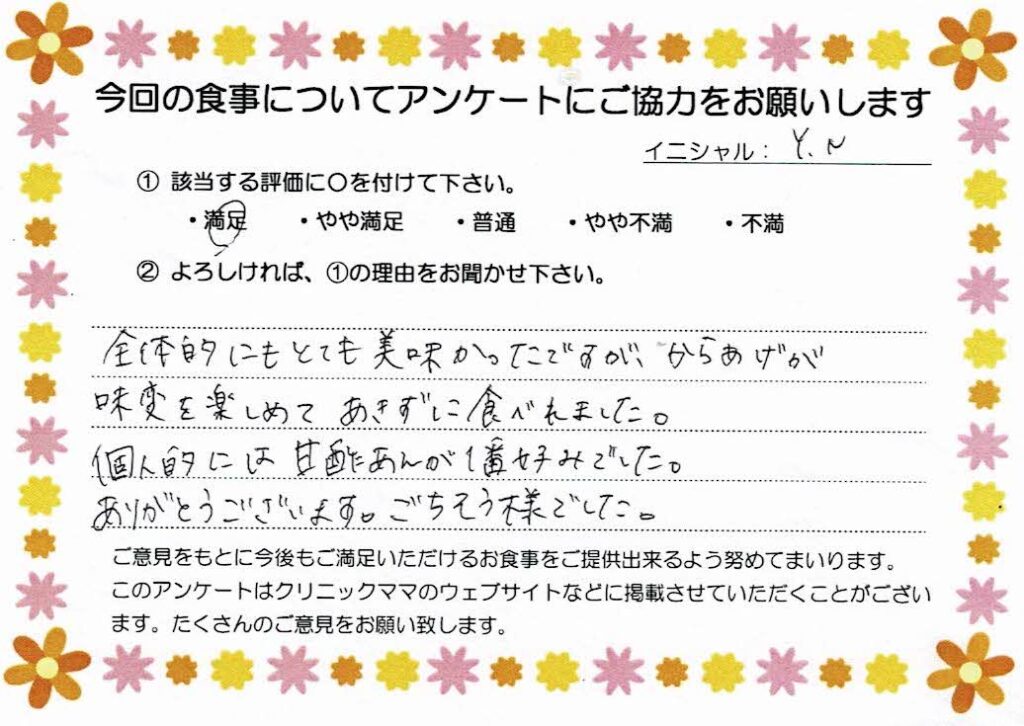 今回の食事についてアンケートにご協力をお願いします
イニシャル: Y.N
① 該当する評価に〇を付けて下さい。
・満足 ・やや満足 ・普通 ・やや不満 ・不満
② よろしければ、①の理由をお聞かせ下さい。
全体的にもとても美味かったですが、からあげが
味変を楽しめて あきずに食べれました。
個人的には甘酢あんが1番好みでした。
ありがとうございます。ごちそう様でした。
ご意見をもとに今後もご満足いただけるお食事をご提供出来るよう努めてまいります。
このアンケートはクリニックママのウェブサイトなどに掲載させていただくことがござい
ます。たくさんのご意見をお願い致します。